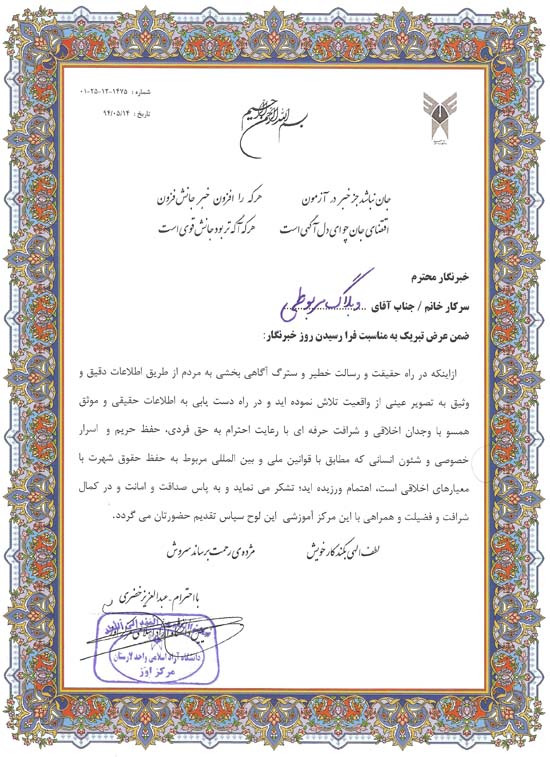 شماره : ۱۴۷۵-۱۲-۲۵-۰۱
تاریخ : ۹۴/۰۵/۱۴
بسم الله الرحمن الرحیم
جان نباشد جز خبر در آزمون هرکه را افزون خبر جانش فزون
اقتضای جان چو ای دل آگهی است هرکه آگه تر بود جانش قوی است
خبرنگار محترم
سرکار خانم / جناب آقای وبلاگ
ضمن عرض تبریک به مناسبت فرا رسیدن روز خبرنگار:
ازاینکه در راه حقیقت و رسالت خطیر و سترگ آگاهی بخشی به مردم از طریق اطلاعات دقیق و
وثیق به تصویر عینی از واقعیت تلاش نموده اید و در راه دست یابی به اطلاعات حقیقی و موثق
همسو با وجدان اخلاقی و شرافت حرفه ای با رعایت احترام به حق فردی، حفظ حریم و اسرار
خصوصی و شئون انسانی که مطابق با قوانین ملی و بین المللی مربوط به حفظ حقوق شهرت با
معیارهای اخلاقی است، اهتمام ورزیده اید؛ تشکر می نماید و به پاس صداقت و امانت و در کمال
شرافت و فضیلت و همراهی با این مرکز آموزشی این لوح سپاس تقدیم حضورتان می گردد.
لطف الهی بکند کار خویش مژده ی رحمت برساند سروش
با احترام - عبدالعزیز خضری
دانشگاه آزاد اسلامی واحد لارستان
مرکز اوز